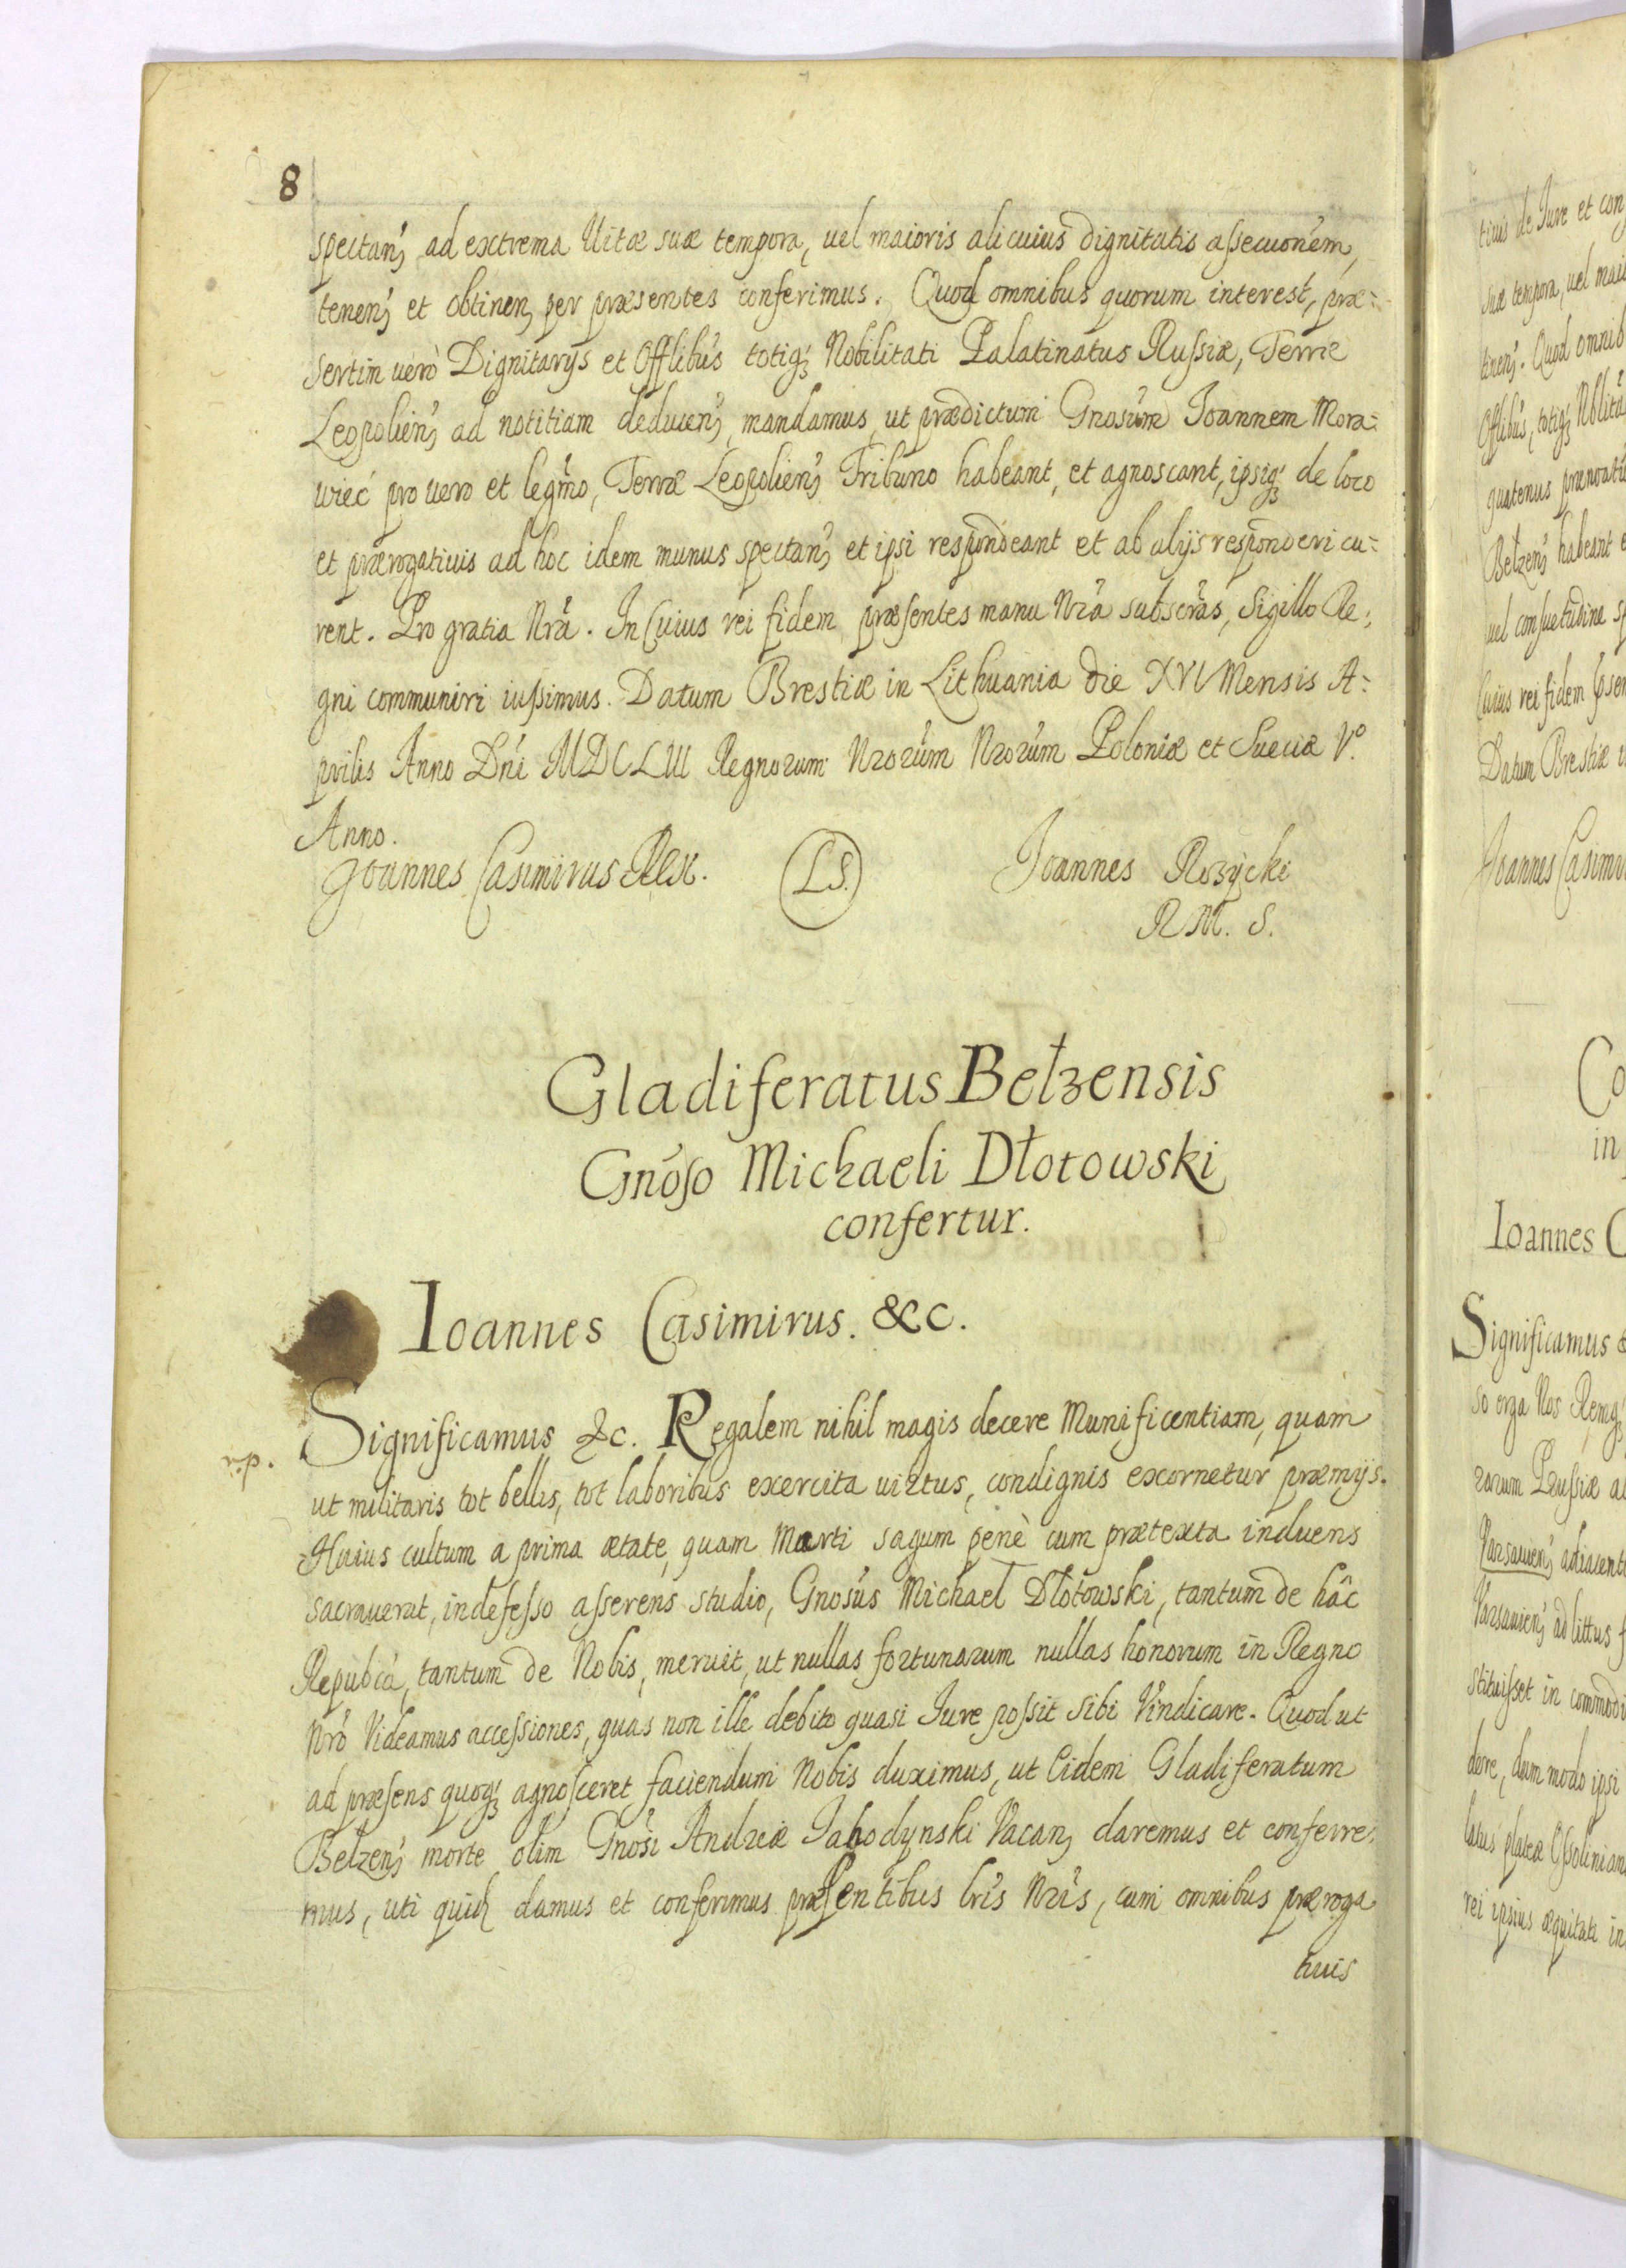 8
spectan̄, ad extrema Uitæ suæ tempora, uel maioris alicuius dignitatis assecuōnem,
tenen̄, et obtinen, per præsentes conferimus. Quod omnibus quorum interest, præ=
sertim uerò Dignitarijs et Offlibūs totiq́ꝫ Nobilitati Palatinatus Russiæ, Terræ
Leopolien̄, ad notitiam deducen̄, mandamus, ut prædictum Gnosūm Ioannem Mora=
wiec pro uero et legm̄o, Terræ Leopolien̄, Tribuno habeant, et agnoscant, ipsiq́ꝫ de loco
et prærogatiuis ad hoc idem munus spectan̄, et ipsi respondeant et ab alijs responderi cu=
rent. Pro gratia Nrā. In Cuius rei fidem præsentes manu Nrā subscrās, Sigillo Re=
gni communiri iussimus. Datum Brestiæ in Lithuania die XVI Mensis A=
prilis Anno Dn̄i MDCLIII Regnorum Nrorūm Nrorūm Poloniæ et Sueciæ V.º
Anno.
Joannes Casimirus Rex. L.S. Joannes Rozycki
R M. S.
Gladiferatus Bełzensis
Gnōso Michaeli Dłotowski
confertur.
Ioannes Casimirus. &c.
r.p. Significamus &c. Regalem nihil magis decere Munificentiam, quam
ut militaris tot bellis, tot laboribus exercita uirtus, condignis exornetur præmijs.
Huius cultum a prima ætate, quam Marti sagum penè cum prætexta induens
sacrauerat, indefesso asserens studio, Gnosūs Michael Dłotowski, tantum de hâc
Repubcā, tantum de Nobis, meruit, ut nullas fortunarum nullas honorum in Regno
Nrō Videamus accessiones, quas non ille debito quasi Iure possit sibi Vindicare. Quod ut
ad præsens quoq́ꝫ agnosceret faciendum Nobis duximus, ut Eidem Gladiferatum
Bełzen̄, morte olim Gnōsi Andreæ Jahodynski Vacan, daremus et conferre=
mus, uti quidȝ damus et conferimus præsentibus lrīs Nrīs, cum omnibus præroga
tiuis
tiuis de Iure et con
suæ tempora, uel maio
tinen̄. Quod omnib
Offlibūs, totiq́ꝫ Nblitā
quatenus
Bełzen̄, habeant e
uel consuetudine sp
Cuius rei fidem
Datum Brestiæ
Joannes Casimi
Co
in
Ioannes C
Significamus &
so erga Nos
Prussiæ
Varsauien̄, adiacent
Varsauien̄, ad littus
stituisset in commodi
dere, dum modo ipsi
latus plateæ Ossolinian
rei ipsius æquitati in